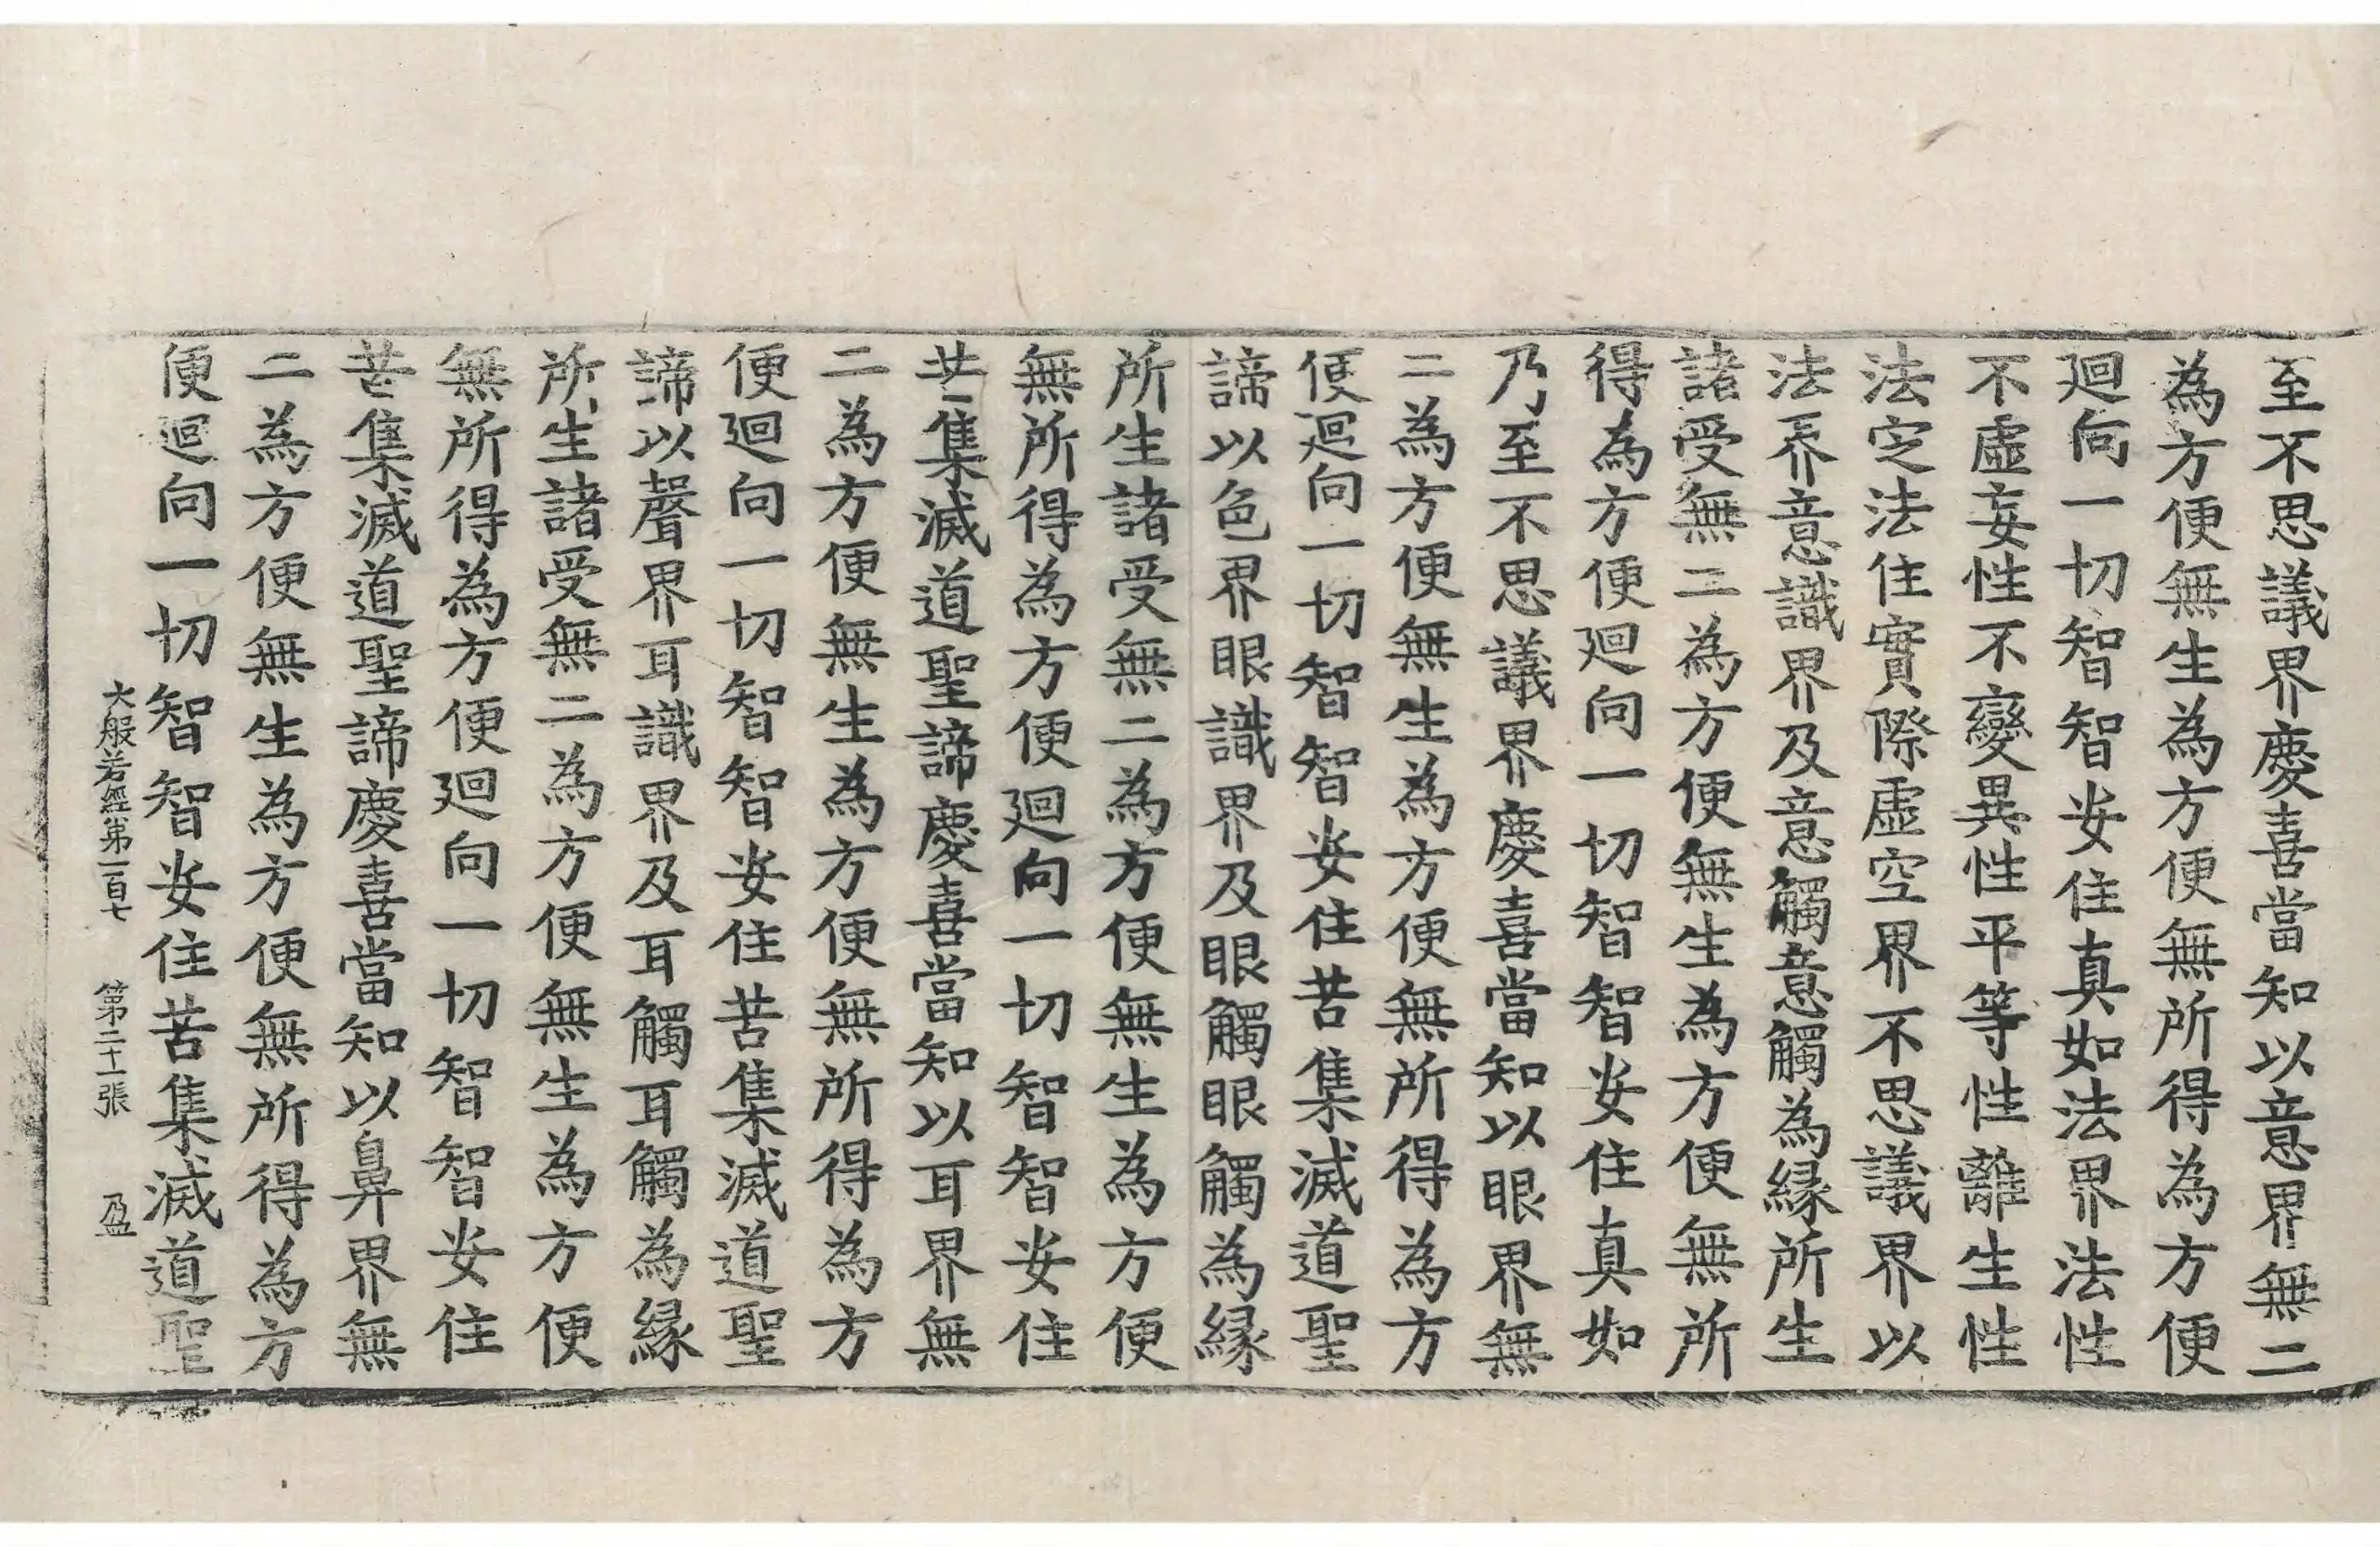 至不思議界慶喜當知以意界無二
為方便無生為方便無所得為方便
廻向一切智智安住真如法界法性
不虛妄性不變異性平等性離生性
法定法住實際虛空界不思議界以
法界意識界及意觸意觸為縁所生
諸受無二為方便無生為方便無所
得為方便廻向一切智智安住真如
乃至不思議界慶喜當知以眼界無
二為方便無生為方便無所得為方
便廻向一切智智安住苦集滅道聖
諦以色界眼識界及眼觸眼觸為縁
所生諸受無二為方便無生為方便
無所得為方便廻向一切智智安住
苦集滅道聖諦慶喜當知以耳界無
二為方便無生為方便無所得為方
便廻向一切智智安住苦集滅道聖
諦以聲界耳識界及耳觸耳觸為縁
所生諸受無二為方便無生為方便
無所得為方便廻向一切智智安住
苦集滅道聖諦慶喜當知以鼻界無
二為方便無生為方便無所得為方
便廻向一切智智安住苦集滅道聖
大般若經第一百七 第二十張 盈